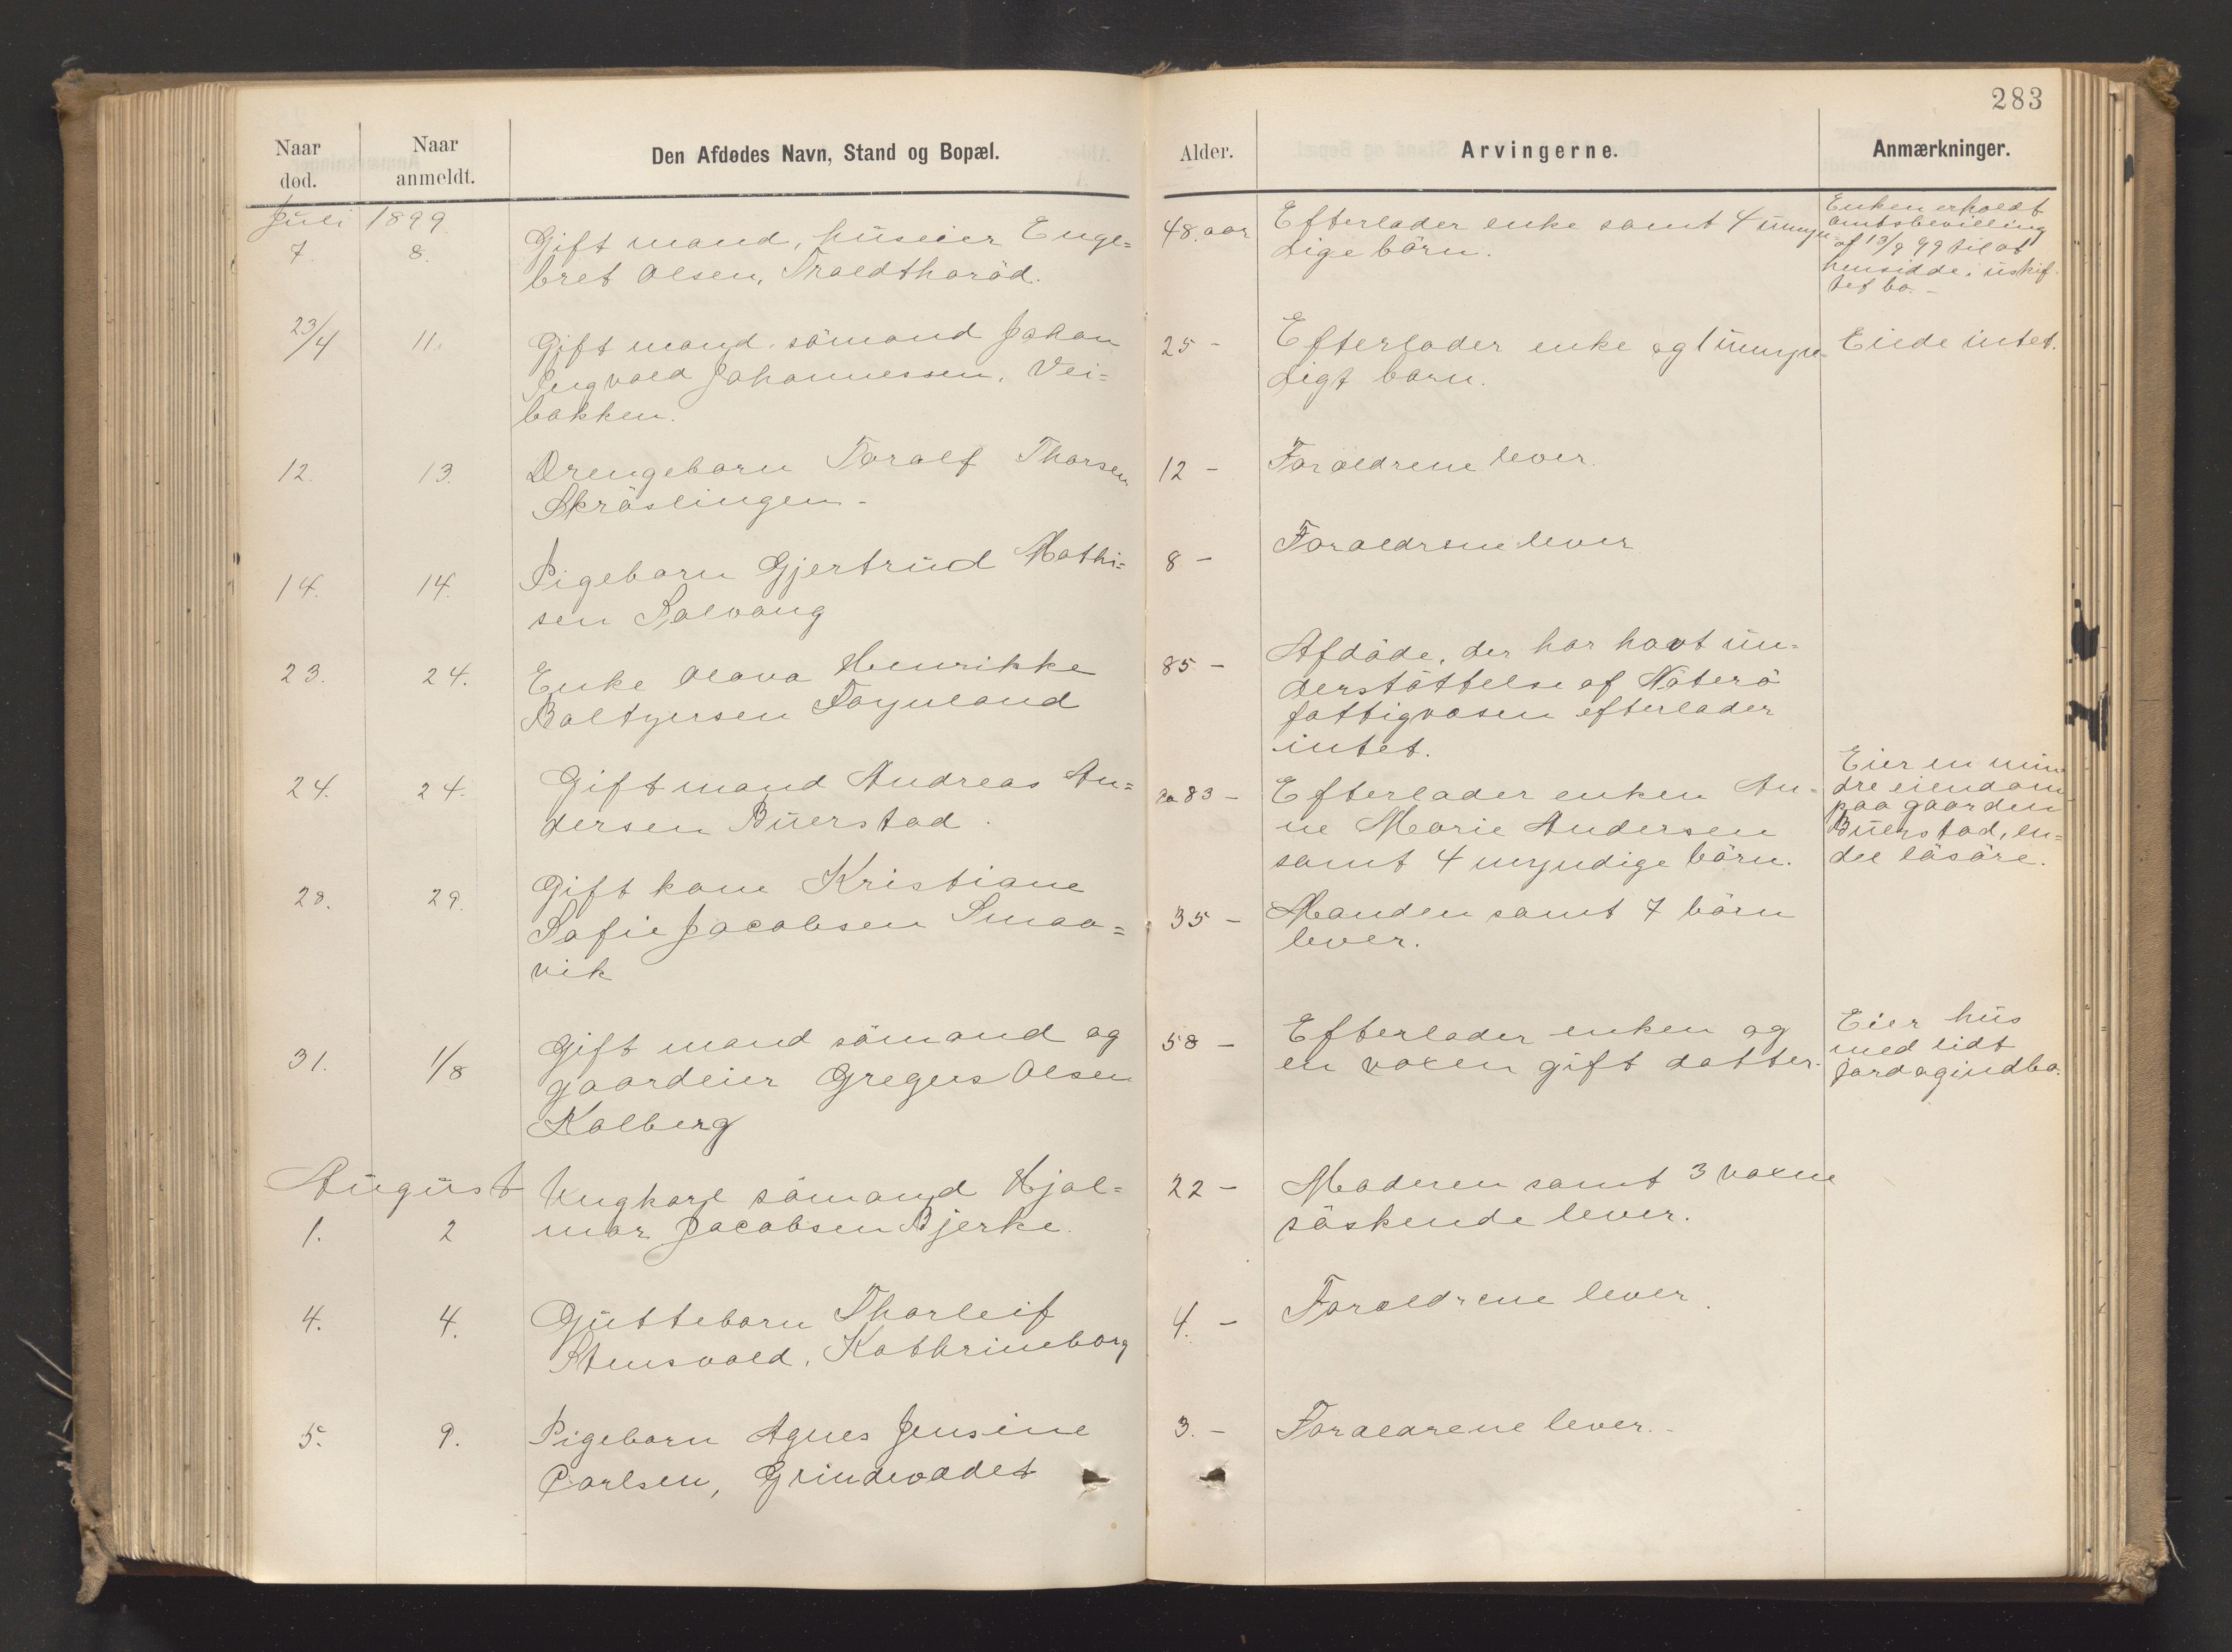 283
Naar
død.
Naar
anmeldt.
Den Afdødes Navn, Stand og Bopæl.
Alder.
Arvingerne.
Anmærkninger.
Juli 1899
7.
8.
Gift mand, huseier Enge=
bret Olsen, Træltharöd.
48. aar
Efterlader enke samt 4 umyn-
dige börn.
Enken erholdt
amtsbevilling
af 13/9 99 til at
hensidde i uskif-
tet bo.-
23/4
11.
Gift mand, sömand Johan
Ingvald Johannessen, Vei=
bakken.
25 -
Efterlader enke og 1 umyn=
digt barn.
Eiede intet.
12.
13.
Drengebarn Toralf Thorsen
Skräslingen -
12 -
Forældrene lever.
14.
14.
Pigebarn Gjertrud Mathi=
sen Solvang
8 -
Forældrene lever
23.
24.
Enke Olava Henrikke
Baltzersen Töynland
85 -
Afdöde, der har havt un-
derstöttelse af Nöterö
fattigvæsen efterlader
intet.
24.
24.
Gift mand Andreas An=
dersen Buerstad.
83 -
Efterlader enken An-
ne Marie Andersen
samt 4 myndige börn.
Eier en min
dre eiendom
paa gaarden
Buerstad, en=
del lösöre.
28.
29.
Gift kone Kristiane
Sofie Jacobsen Smaa=
vik
35 -
Manden samt 7 börn
lever.
31.
1/8
Gift mand sömand og
gaardeier Gregers Olsen
Kolberg
58 -
Efterlader enken og
en voxen gift datter.
Eier hus
med lidt
jord og indbo.
August
1.
2
Ungkarl sömand Hjal=
mar Jacobsen Bjerke.
22 -
Moderen samt 3 voxne
söskende lever.
4.
4.
Guttebarn Thorleif
Stensvold, Kathrineborg
4. -
Forældrene lever.
5.
9.
Pigebarn Agnes Jensine
Carlsen, Grindevadet
3. -
Forældrene lever.-